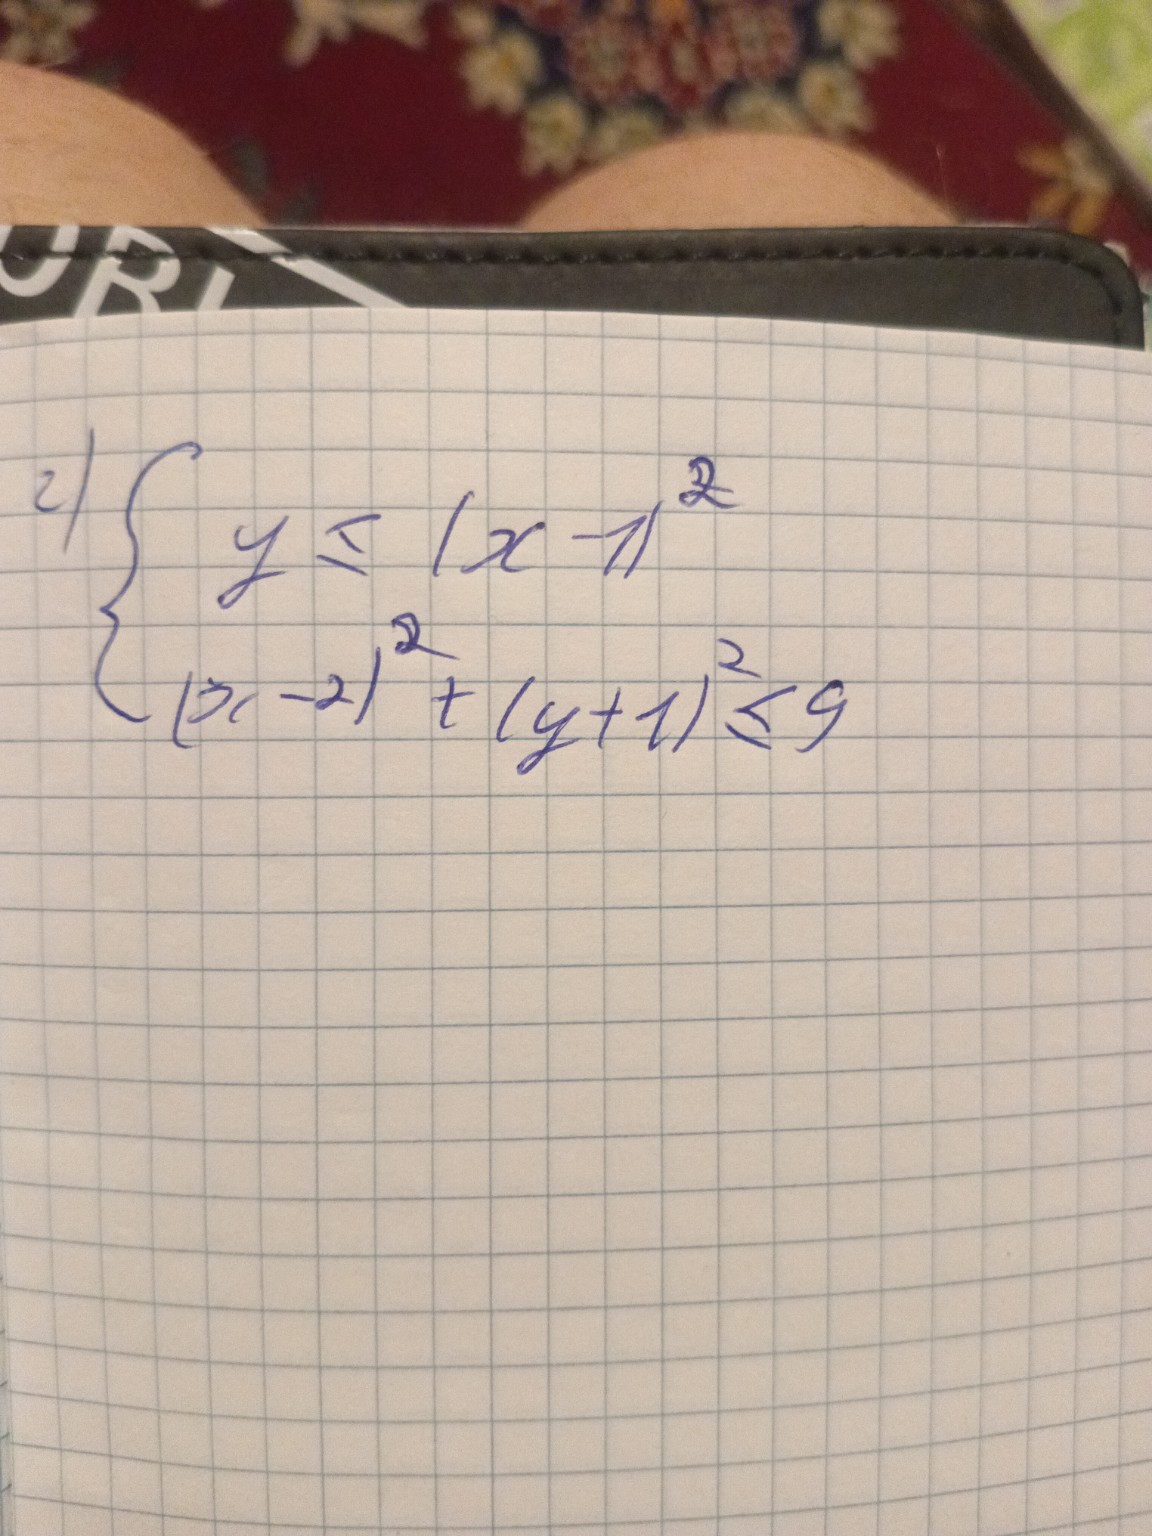 г) { y ≤ (x - 1)²
(x - 2)² + (y + 1)² ≤ 9